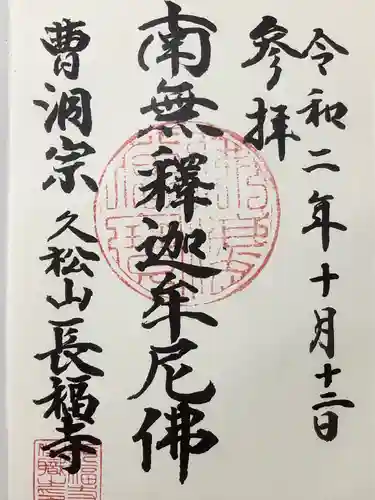 令和二年十月十二日
参拝
南無釋迦牟尼佛
曹洞宗
久松山長福寺